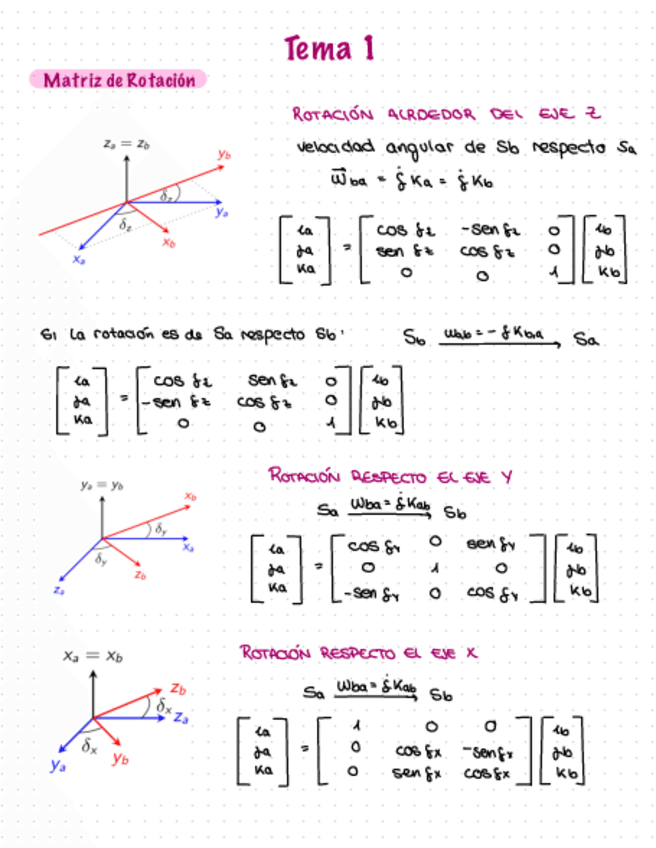 Tema 1
Matriz de Rotación
ROTACIÓN ALRDEDOR DEL EJE Z
velocidad angular de Sb respecto Sa
w⃗ba = δ̇ Ka = δ̇ Kb
za = zb
yb
δz
ya
δz
xb
xa
[ia ja Ka] = [cos δz -sen δz 0; sen δz cos δz 0; 0 0 1] [ib jb Kb]
Si la rotación es de Sa respecto Sb:
Sb wab = - δ̇ Kb,a → Sa
[ia ja Ka] = [cos δz sen δz 0; -sen δz cos δz 0; 0 0 1] [ib jb Kb]
ROTACIÓN RESPECTO EL EJE Y
Sa wba = δ̇ Kab → Sb
ya = yb
xb
δy
xa
δy
zb
za
[ia ja Ka] = [cos δy 0 sen δy; 0 1 0; -sen δy 0 cos δy] [ib jb Kb]
ROTACIÓN RESPECTO EL EJE X
Sa wba = δ̇ Kab → Sb
xa = xb
zb
δx
za
δx
yb
ya
[ia ja Ka] = [1 0 0; 0 cos δx -sen δx; 0 sen δx cos δx] [ib jb Kb]